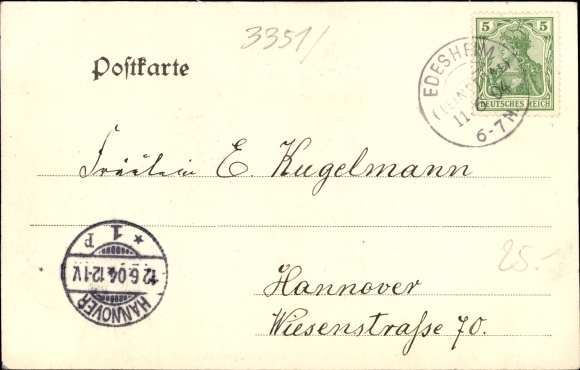 3351/
5 5
DEUTSCHES REICH
EDESHEIM
11 6 04
6-7 N.
Postkarte
Fräulein E. Kugelmann
HANNOVER
12.6.04.12-1V.
* 1 P
25.-
Hannover
Wiesenstraſse 70.